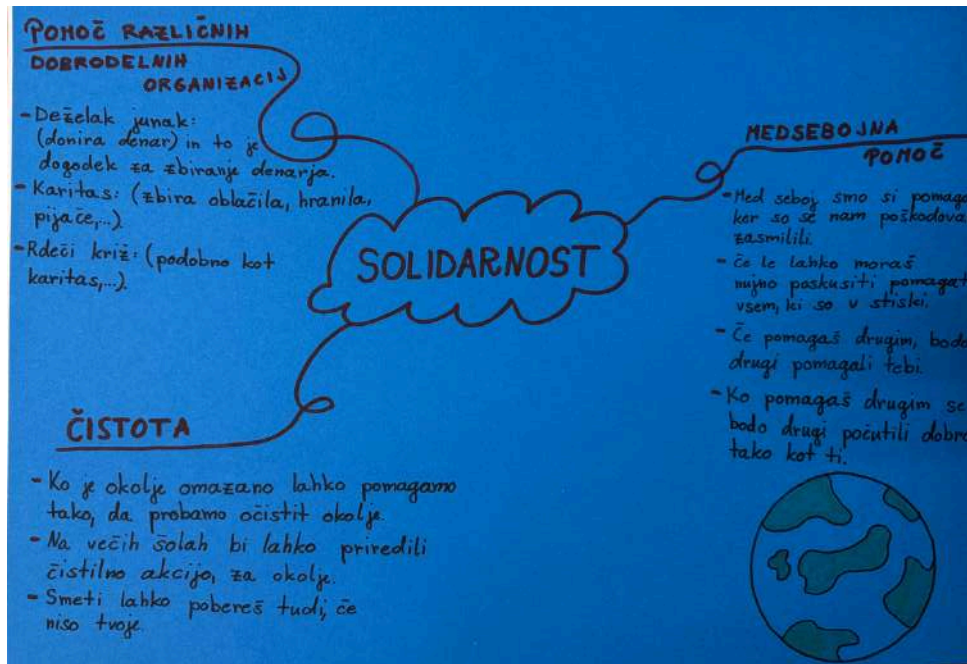 POMOČ RAZLIČNIH
DOBRODELNIH
ORGANIZACIJ
- Deželak junak:
(donira denar) in to je
dogodek za zbiranje denarja.
- Karitas: (zbira oblačila, hranila,
pijače,...).
- Rdeči križ: (podobno kot
karitas,...).
SOLIDARNOST
MEDSEBOJNA
POMOČ
- Med seboj smo si pomaga
ker so se nam poškodova
zasmilili.
- Če le lahko moraš
nujno poskusiti pomagat
vsem, ki so v stiski.
- Če pomagaš drugim, bodo
drugi pomagali tebi.
- Ko pomagaš drugim se
bodo drugi počutili dobro
tako kot ti.
ČISTOTA
- Ko je okolje omazano lahko pomagamo
tako, da probamo očistit okolje.
- Na večih šolah bi lahko priredili
čistilno akcijo, za okolje.
- Smeti lahko pobereš tudi, če
niso tvoje.